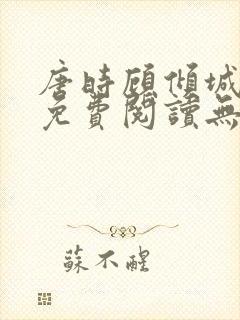 唐時顧傾城
免費閱讀無
蘇不醒